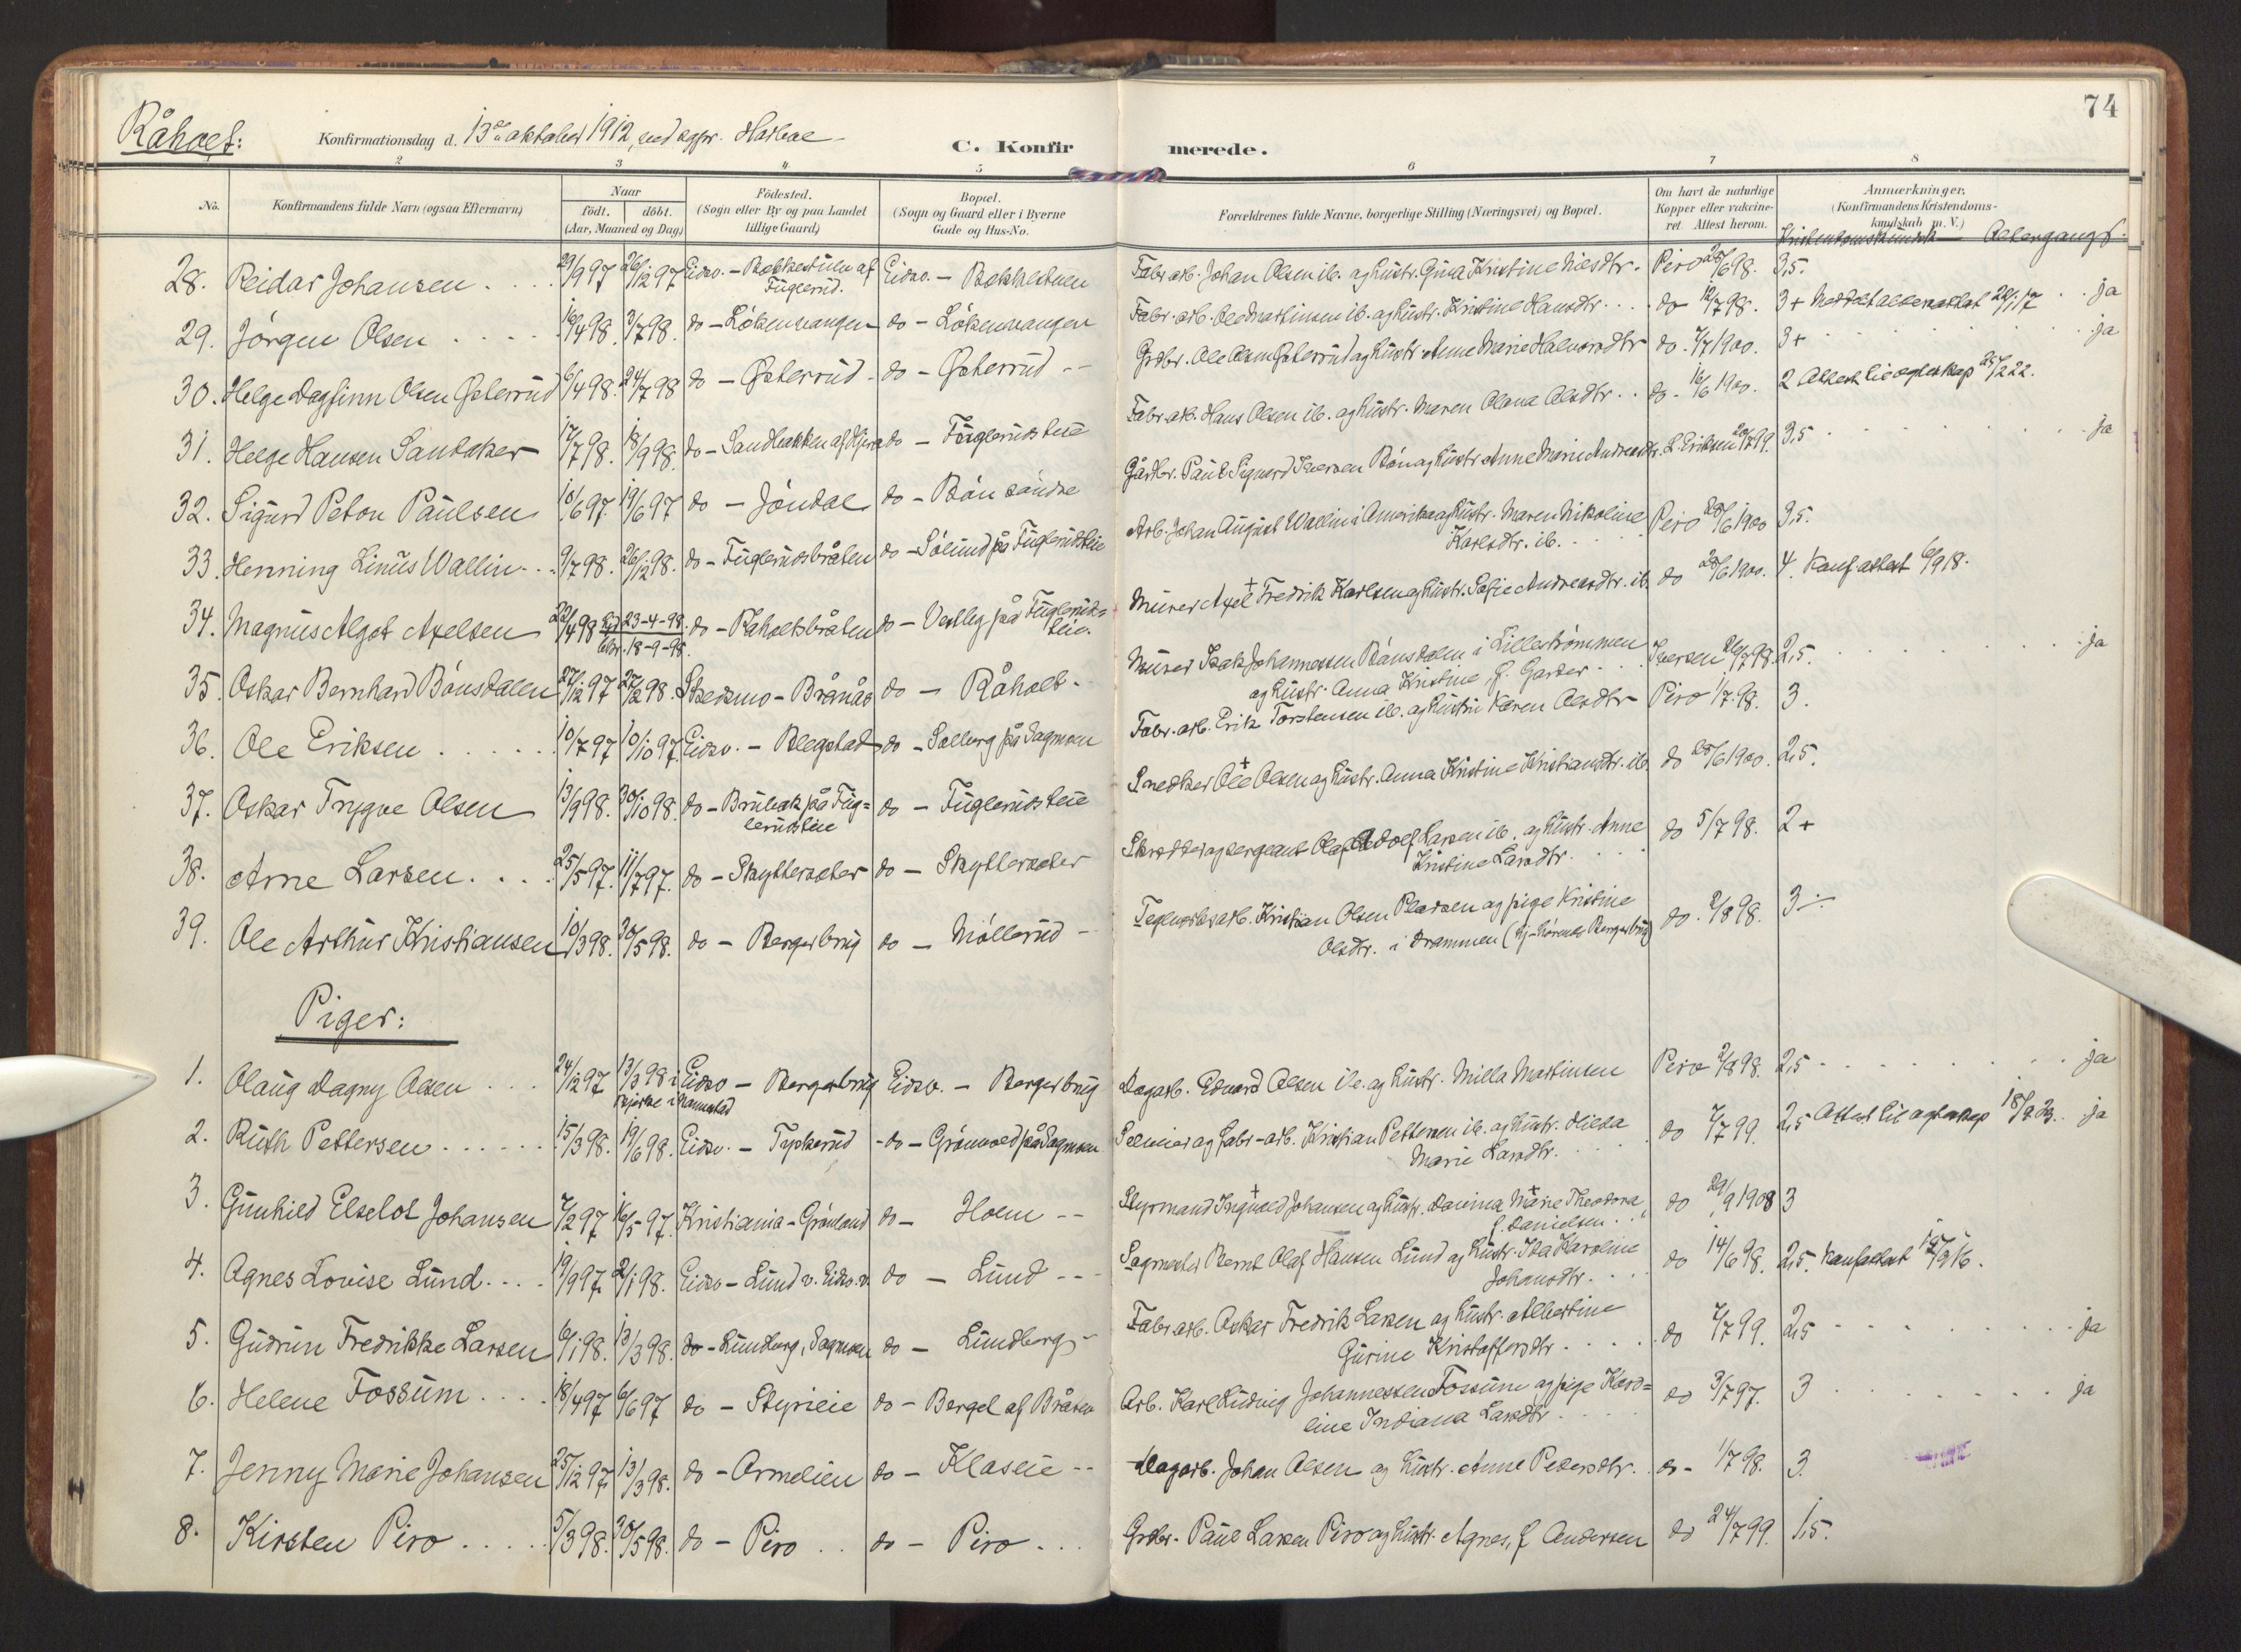 74
Råholt:
Konfirmationsdag d. 13de oktober 1912, ved sgpr.
C. Konfirmerede.
2 3 4 5 6 7 8
No. Konfirmandens fulde Navn (ogsaa Efternavn) Naar født. døbt. (Aar, Maaned og Dag) Födested. (Sogn eller By og paa Landet tillige Gaard) Bopæl. (Sogn og Gaard eller i Byerne Gade og Hus-No. Forældrenes fulde Navne, borgerlige Stilling (Næringsvei) og Bopæl. Om havt de naturlige Kopper eller vakcineret Attest herom. Anmærkninger, (Konfirmandens Kristendomskundskab m. V.)
Kristendomskundsk.
28. Reidar Johansen 29/9 97 26/12 97 Eidsv. - Bekkestuen af Fuglerud. Eidsv. - Bekkestuen Fabr. arb. Johan Olsen ib. og hustr. Gina Kristine Nilsdtr. Piro 28/6 98. 3,5.
29. Jörgen Olsen 16/4 98. 3/7 98. do - Lökenvangen do - Lökenvangen Fabr. arb. Ole Martinsen ib. og hustr. Kristine Hansdtr. do 12/7 98. 3+ ja
30. Helge Dagfinn Olsen Østerrud 6/4 98. 24/7 98 do - Østerrud - do - Østerrud -- Grdbr. Ole Olsen Østerrud og hustr. Anne Marie Halvorsdtr do. 7/7 1900. 3+ ja
31. Helge Hansen Sandaker 17/7 98. 18/9 98. do - Sandbakken af do - Fuglerudseie Fabr. arb. Hans Olsen ib. og hustr. Maren Olava Olsdtr. do. 16/6 1900. 2 Attest til ægteskap 25/2 22.
32. Sigurd Peton Paulsen 10/6 97. 19/6 97 do - Jöndal do - Bön söndre Gårdbr. Paul Sigvard Iversen Bön og hustr. Anne Marie Andreasdtr. L. Eriksen 20/7 99. 3,5 ja
33. Henning Linus Wallin 9/7 98. 26/12 98. do - Fuglerudsbråten do - Sölund på Fuglerudseie Arb. Johan August Wallin i Amerika og hustr. Maren Nikoline Karlsdtr. ib. Piro 28/6 1900 3,5.
34. Magnus Algot Axelsen 22/4 98 23-4-98. 18-9-98. do - Råholtsbråten do - Vestby på Fuglerudseie. Murer Axel + Fredrik Karlsen og hustr. Sofie Andreasdtr. ib. do 28/6 1900. 4. Konf. attest 6/9 18.
35. Oskar Bernhard Bönsdalen 27/12 97 27/2 98. Skedsmo - Brånås do - Råholt - Murer Isak Johannessen Bönsdalen i Lilleströmmen og hustr. Anna Kristine, f. Garder Iversen 26/7 98. 2,5. ja
36. Ole Eriksen 10/7 97 10/10 97. Eidsv. - Blegstad do - Solberg på Dagmoen Fabr. arb. Erik Torstensen ib. og hustru Karen Olsdtr Piro 1/7 98. 3.
37. Oskar Trygve Olsen 13/9 98. 30/10 98. do - Brubak på Fuglerudseie do - Fuglerudseie Snedker Ole + Olsen og hustr. Anna Kristine Kristiansdtr. ib. do 28/6 1900. 2,5.
38. Arne Larsen 25/5 97. 11/7 97. do - Skyttersæter do - Skyttersæter Skrædder og sergeant Olaf Adolf Larsen ib. og hustr. Anne Kristine Larsdtr. do 5/7 98. 2+
39. Ole Arthur Kristiansen 10/3 98. 30/5 98. do - Bergerbrug do - Möllerud - Teglverksarb. Kristian Olsen og pige Kristine Olsdtr. i Drammen do. 2/8 98. 3 ÷
Piger:
1. Olaug Dagny Olsen 24/12 97 13/3 98 i Bjerke i Nannestad Eidsv - Bergerbrug Eidsv. - Bergerbrug Dagarb. Edvard Olsen ib. og hustr. Milla Martinsen Piro 2/8 98. 2,5 ja
2. Ruth Pettersen 15/3 98. 19/6 98. Eidsv. - Tyskerud - do - Grönvold på Dagmoen Selveier og fabr-arb. Kristian Pettersen ib. og hustr. Hilda Marie Larsdtr. do 7/7 99. 2,5 Attest til ægteskap 18/9 23. ja
3. Gunhild Elselot Johansen 7/2 97 16/5 97. Kristiania - Grönland do - Holm -- Styrmand Ingvald + Johansen og hustr. Davina Marie + Theodora, f. Danielsen do 29/9 1908 3
4. Agnes Lovise Lund 19/9 97. 2/1 98. Eidsv - Lund v. Eidsv. v. do - Lund -- Sagmester Bernt Olaf Hansen Lund og hustr. Ida Karoline Johansdtr. do 14/6 98. 2,5. Konfattest
5. Gudrun Fredrikke Larsen 6/1 98. 13/3 98. do - Lundberg, Dagmoen do - Lundberg - Fabr. arb. Oskar Fredrik Larsen og hustr. Albertine Gurine Kristoffersdtr do 7/7 99. 2,5 ja
6. Helene Fossum 18/4 97 6/6 97 do - Styrieie do - Bergel af Bråten Arb. Karl Ludvig Johannessen Fossum og pige Karoline Indiana Larsdtr do 3/7 97. 3 ja
7. Jenny Marie Johansen 25/12 97 13/3 98. do - Ormelien do - Klaseie -- Dagarb. Johan Olsen og hustr. Anne Pedersdtr. do - 1/7 98. 3.
8. Kirsten Piro 5/3 98. 30/5 98. do - Piro do - Piro Grdbr. Paul Larsen Piro og hustr. Agnes, f. Andersen do 24/7 99. 1,5.